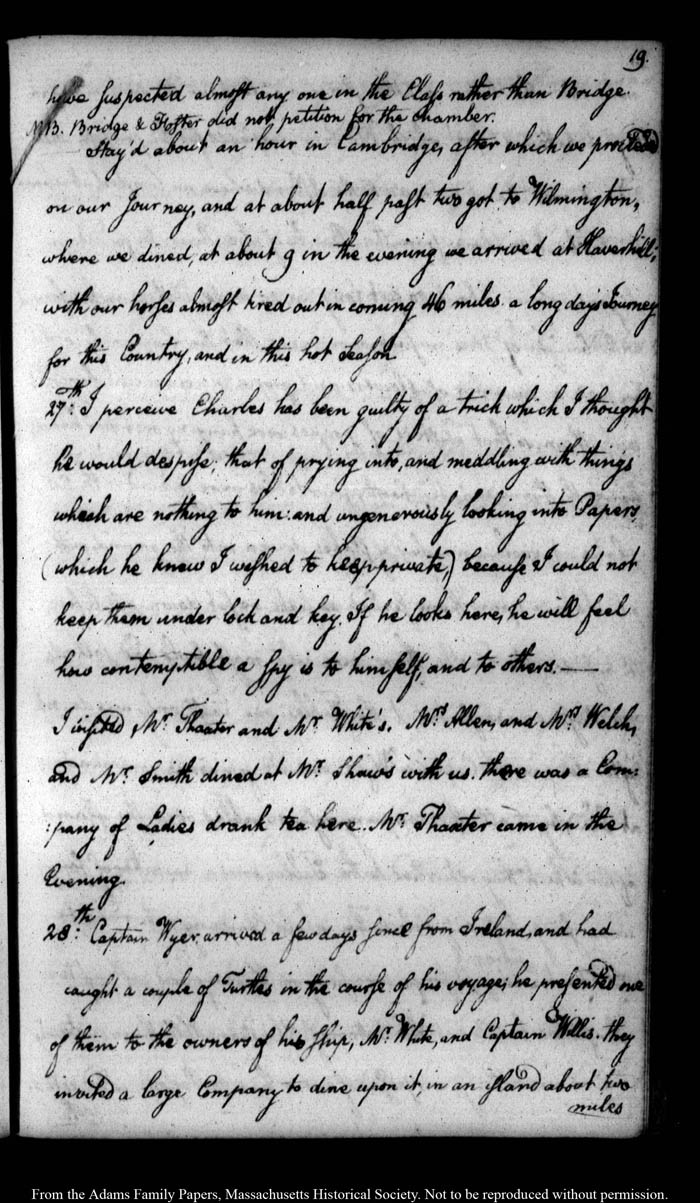 19.
have suspected almost any one in the Class rather than Bridge.
NB. Bridge & Foster did not petition for the chamber.
Stay'd about an hour in Cambridge, after which we proceeded
on our Journey, and at about half past two got to Wilmington,
where we dined, at about 9 in the evening we arrived at Haverhill;
with our horses almost tired out in coming 46 miles. a long days Journey
for this Country, and in this hot Season.
27th: I perceive Charles has been guilty of a trick which I thought
he would despise; that of prying into, and meddling with things
which are nothing to him: and ungenerously looking into Papers,
(which he knew I wished to keep private,) because I could not
keep them under lock and key. If he looks here, he will feel
how contemptible a spy is to himself, and to others.—
I visited, Mr. Thaxter and Mr. White's. Mrs. Allen, and Mrs. Welch,
and Mr. Smith dined at Mr. Shaw's with us. there was a Com:
:pany of Ladies drank tea here. Mr. Thaxter came in the
Evening.
28:th Captain Wyer arrived a few days since from Ireland, and had
caught a couple of Turtles in the course of his voyage; he presented one
of them to the owners of his ship, Mr. White, and Captain Willis. they
invited a large Company to dine upon it, in an island about two
miles
From the Adams Family Papers, Massachusetts Historical Society. Not to be reproduced without permission.